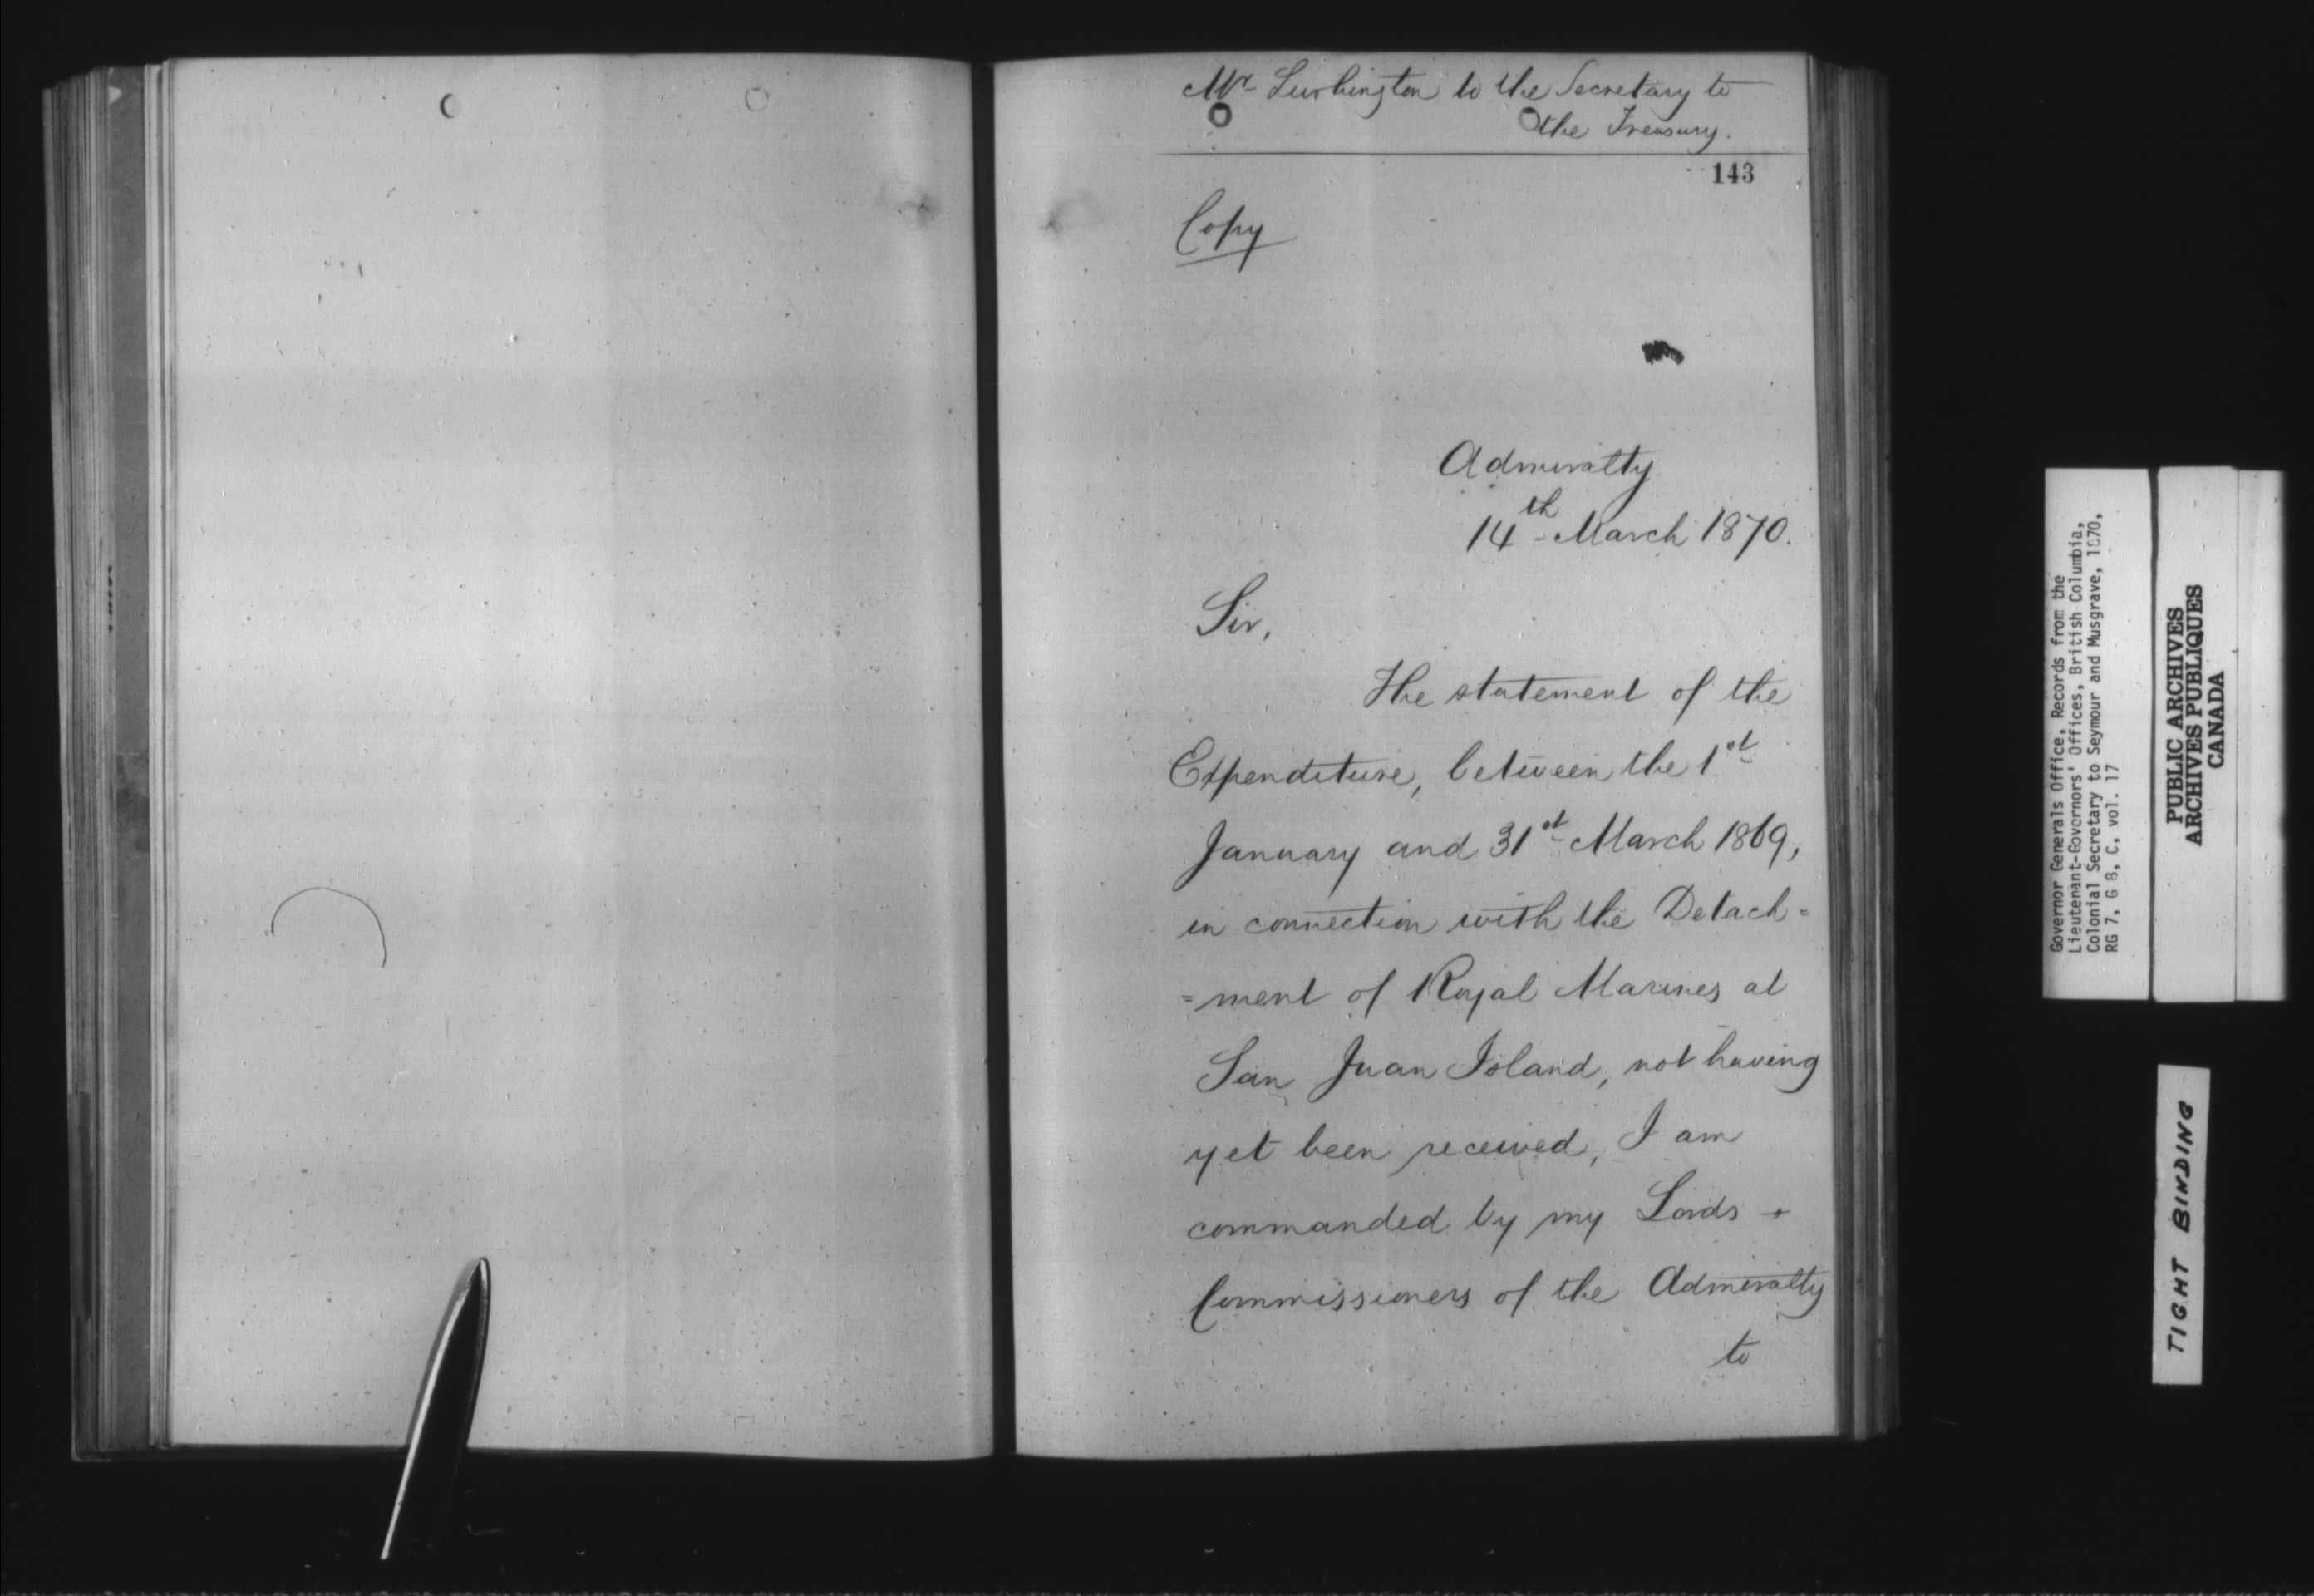 Mr Lushington to the Secretary to
the Treasury.
143
Copy
Admiralty
14th March 1870.
Sir,
The statement of the
Expenditure, between the 1st
January and 31st March 1869,
in connection with the Detach=
=ment of Royal Marines at
San Juan Island, not having
yet been received, I am
commanded by my Lords
Commissioners of the Admiralty
to
Governor Generals Office, Records from the
Lieutenant-Governors' Offices, British Columbia,
Colonial Secretary to Seymour and Musgrave, 1870,
RG 7, G 8, C, vol. 17
PUBLIC ARCHIVES
ARCHIVES PUBLIQUES
CANADA
TIGHT BINDING